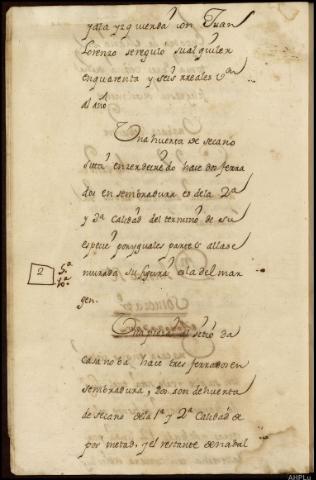 y ala yzquierda con Juan
Lorenzo se reguló su alquiler
en quarenta y seis rreales vⁿ
al año
Una huerta de secano
sita en rendecredo hace dos ferra
dos en sembradura es de la 2ª
y 3ª Calidad del termino de su
especie por yguales partes allase
murada su figura es la del mar
gen.
2
Una pieza al sitio da
casa noba hace tres ferrados en
sembradura, dos son de huerta
de secano de la 1ª y 2ª Calidad
por metad, y el restante denaval
AHPLu